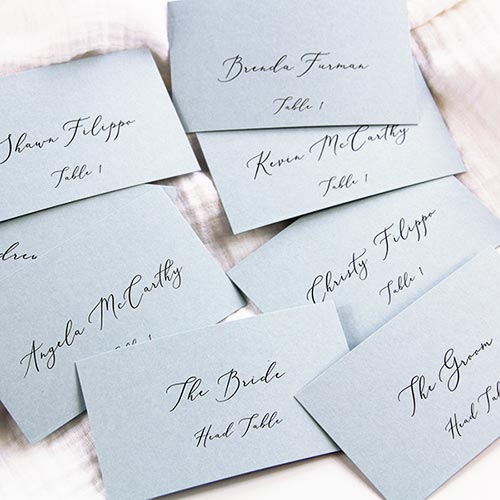 Brenda Furman
Table 1
Shawn Filippo
Table 1
Kevin McCarthy
Table 1
Christy Filippo
Table 1
Angela McCarthy
The Bride
Head Table
The Groom
Head